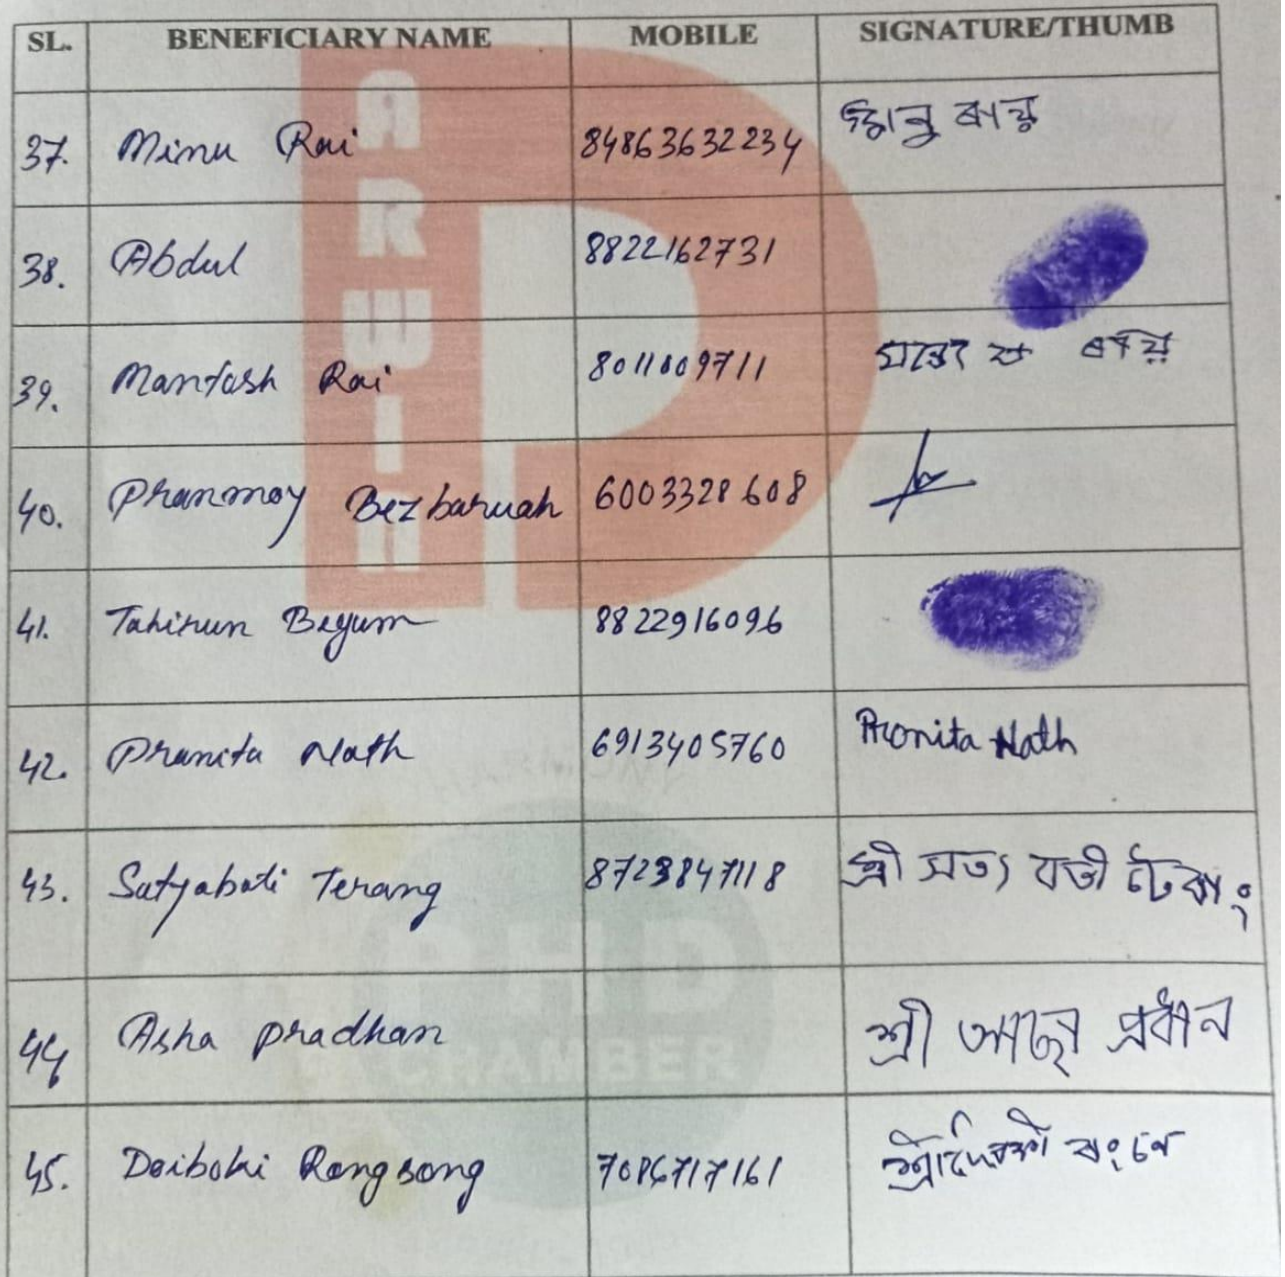 SL. BENEFICIARY NAME MOBILE SIGNATURE/THUMB
37. Minu Rai 84863632234 ৰায়
38. Abdul 8822162731
39. Mantosh Rai 8011009711
40. Pranmoy Bezbaruah 6003328608
41. Tahirun Begum 8822916096
42. Pranita Nath 6913405760 Pronita Nath
43. Satyabati Terang 8723847118 শ্ৰী সত্য বতী টেৰাং
44 Asha Pradhan শ্রী প্রধান
45. Doiboki Rongsong 7086717161
DARWIN
PHD
CHAMBER